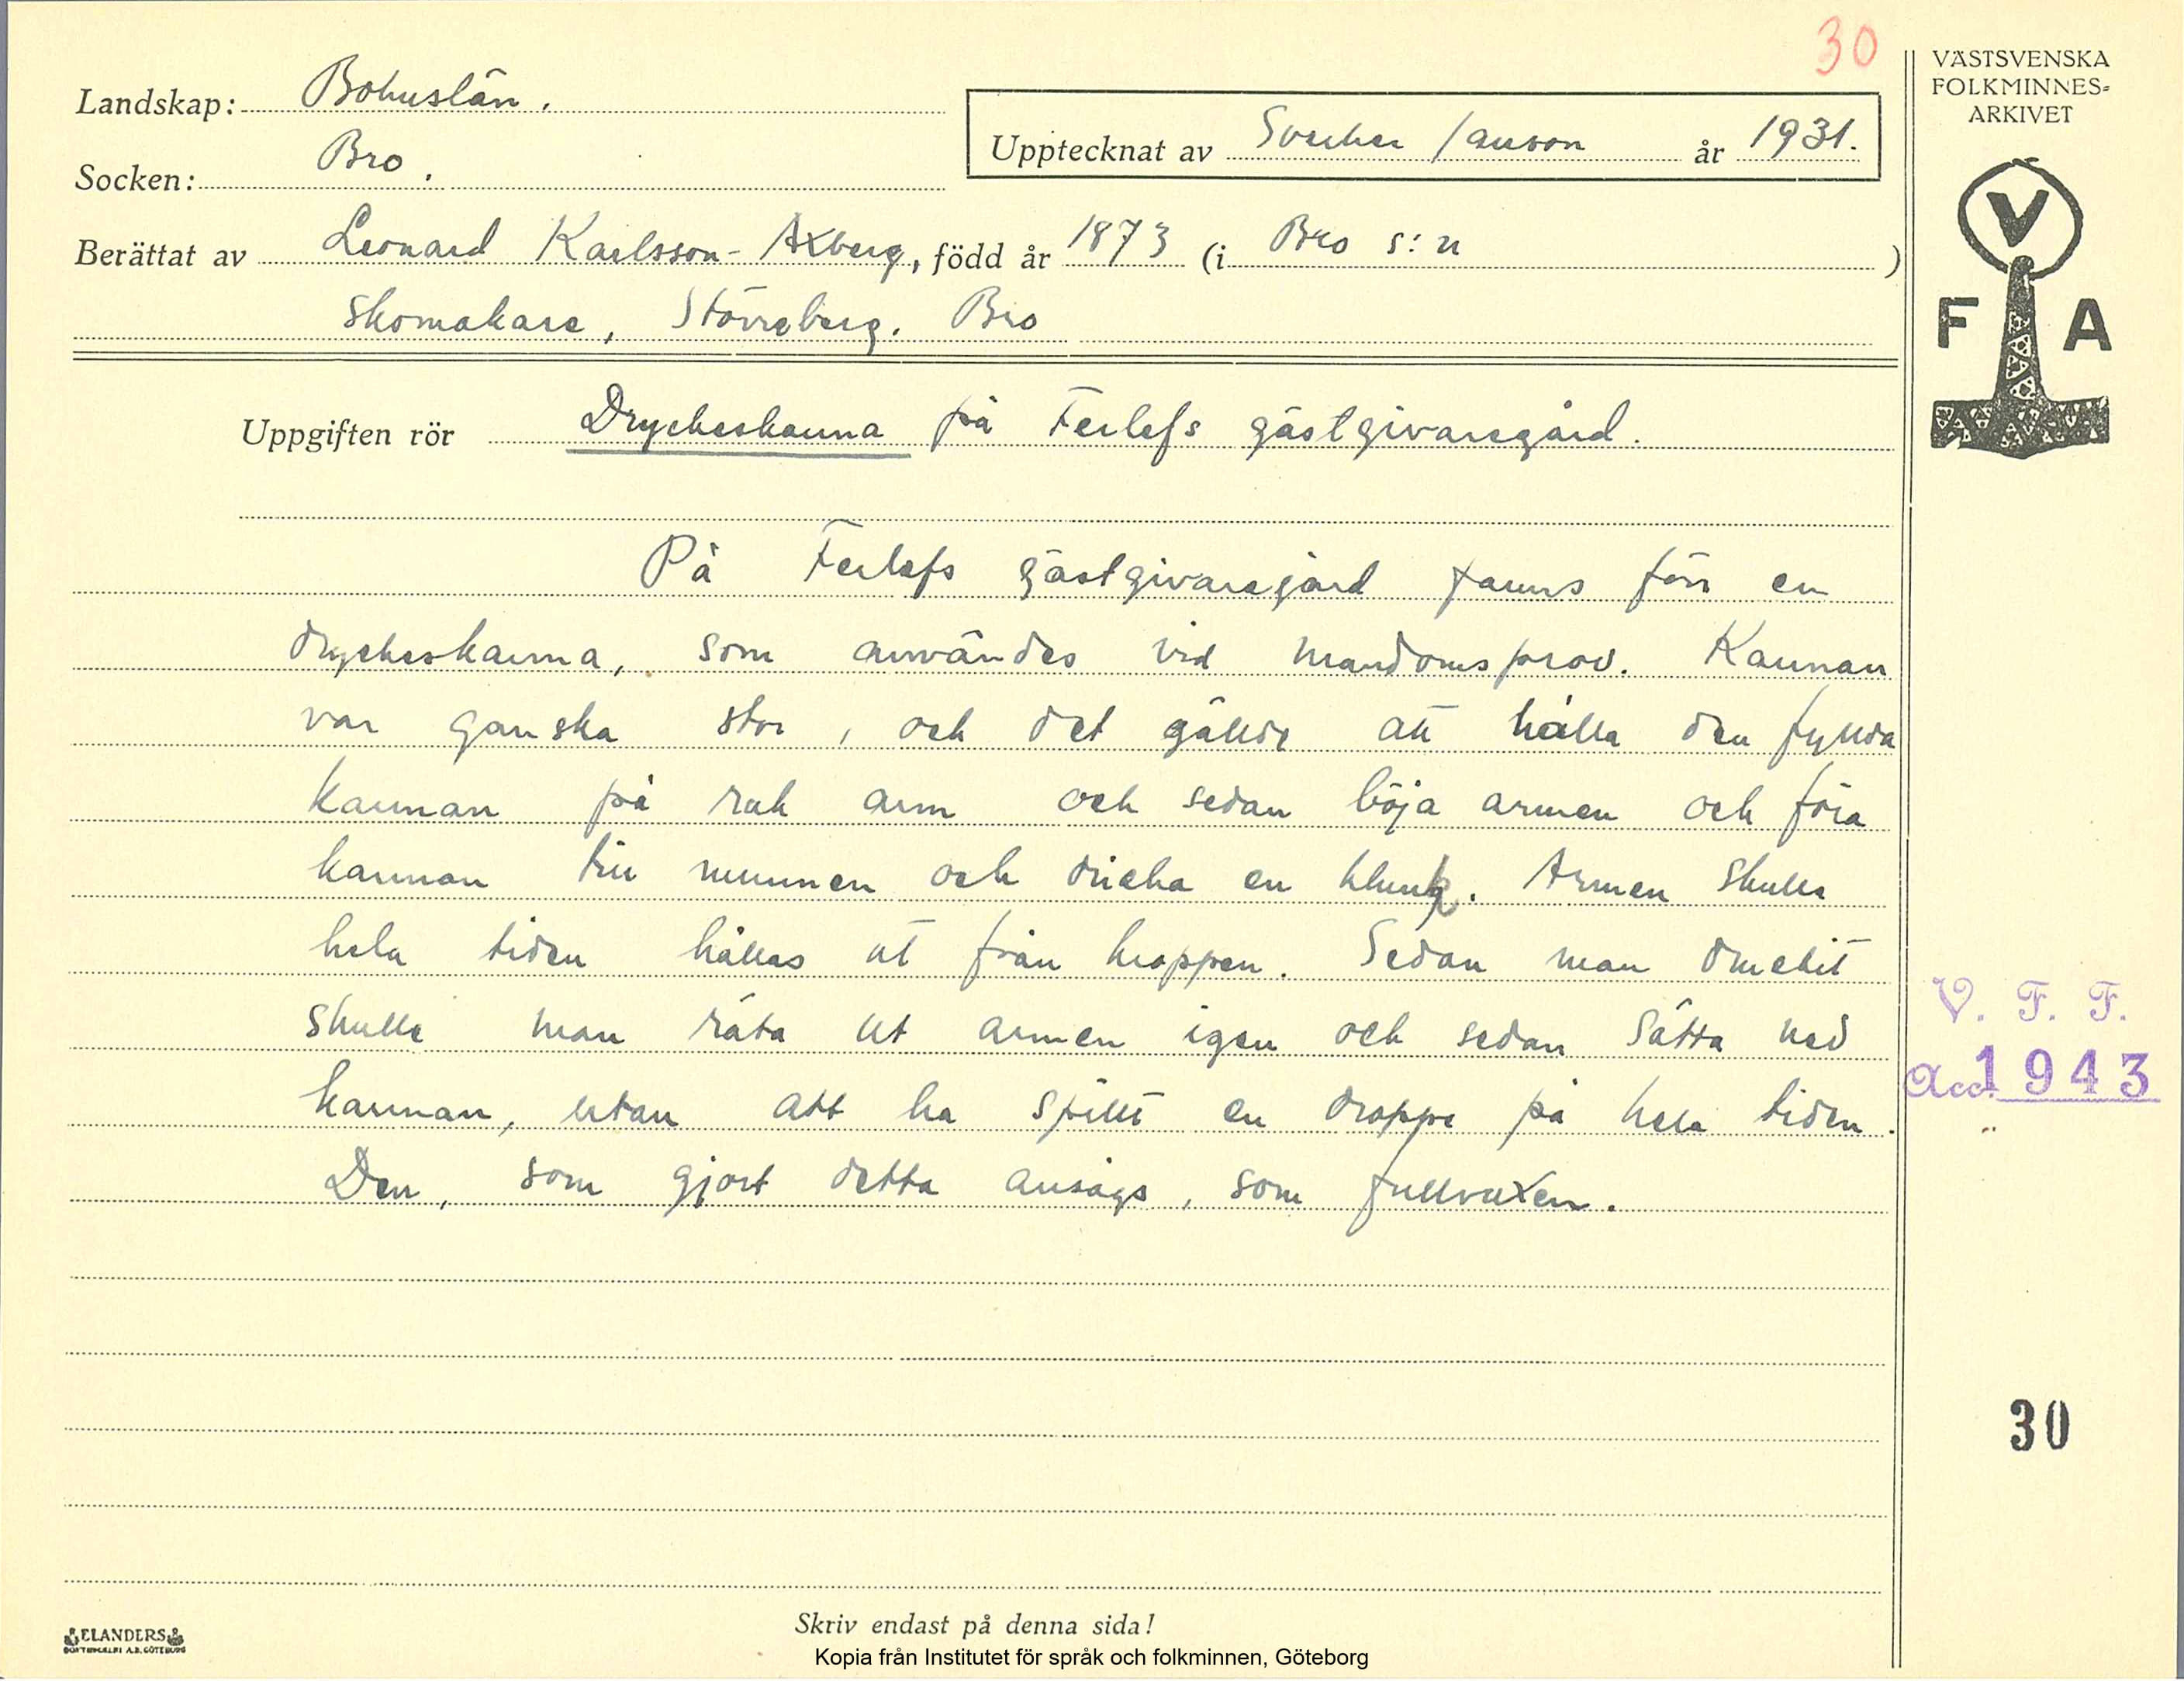 30
VÄSTSVENSKA
FOLKMINNES-
ARKIVET
Landskap: Bohuslän.
Upptecknat av Sverker Janson år 1931.
Socken: Bro.
Berättat av Leonard Karlsson-Axberg, född år 1873 (i Bro s:n )
skomakare, Störreberg. Bro
V
F A
Uppgiften rör Dryckeskanna på Ferlefs gästgivaregård.
På Ferlefs gästgivaregård fanns förr en
dryckeskanna, som användes vid mandomsprov. Kannan
var ganska stor, och det gällde att hålla den fyllda
kannan på rak arm och sedan böja armen och föra
kannan till munnen och dricka en klunk. Armen skulle
hela tiden hållas ut från kroppen. Sedan man druckit
skulle man räta ut armen igen och sedan sätta ned
kannan, utan att ha spillt en droppe på hela tiden.
Den, som gjort detta ansågs, som fullvuxen.
V. F. F.
Acc. 1943
30
Skriv endast på denna sida!
ELANDERS
BOKTRYCKERI A.B. GÖTEBORG
Kopia från Institutet för språk och folkminnen, Göteborg